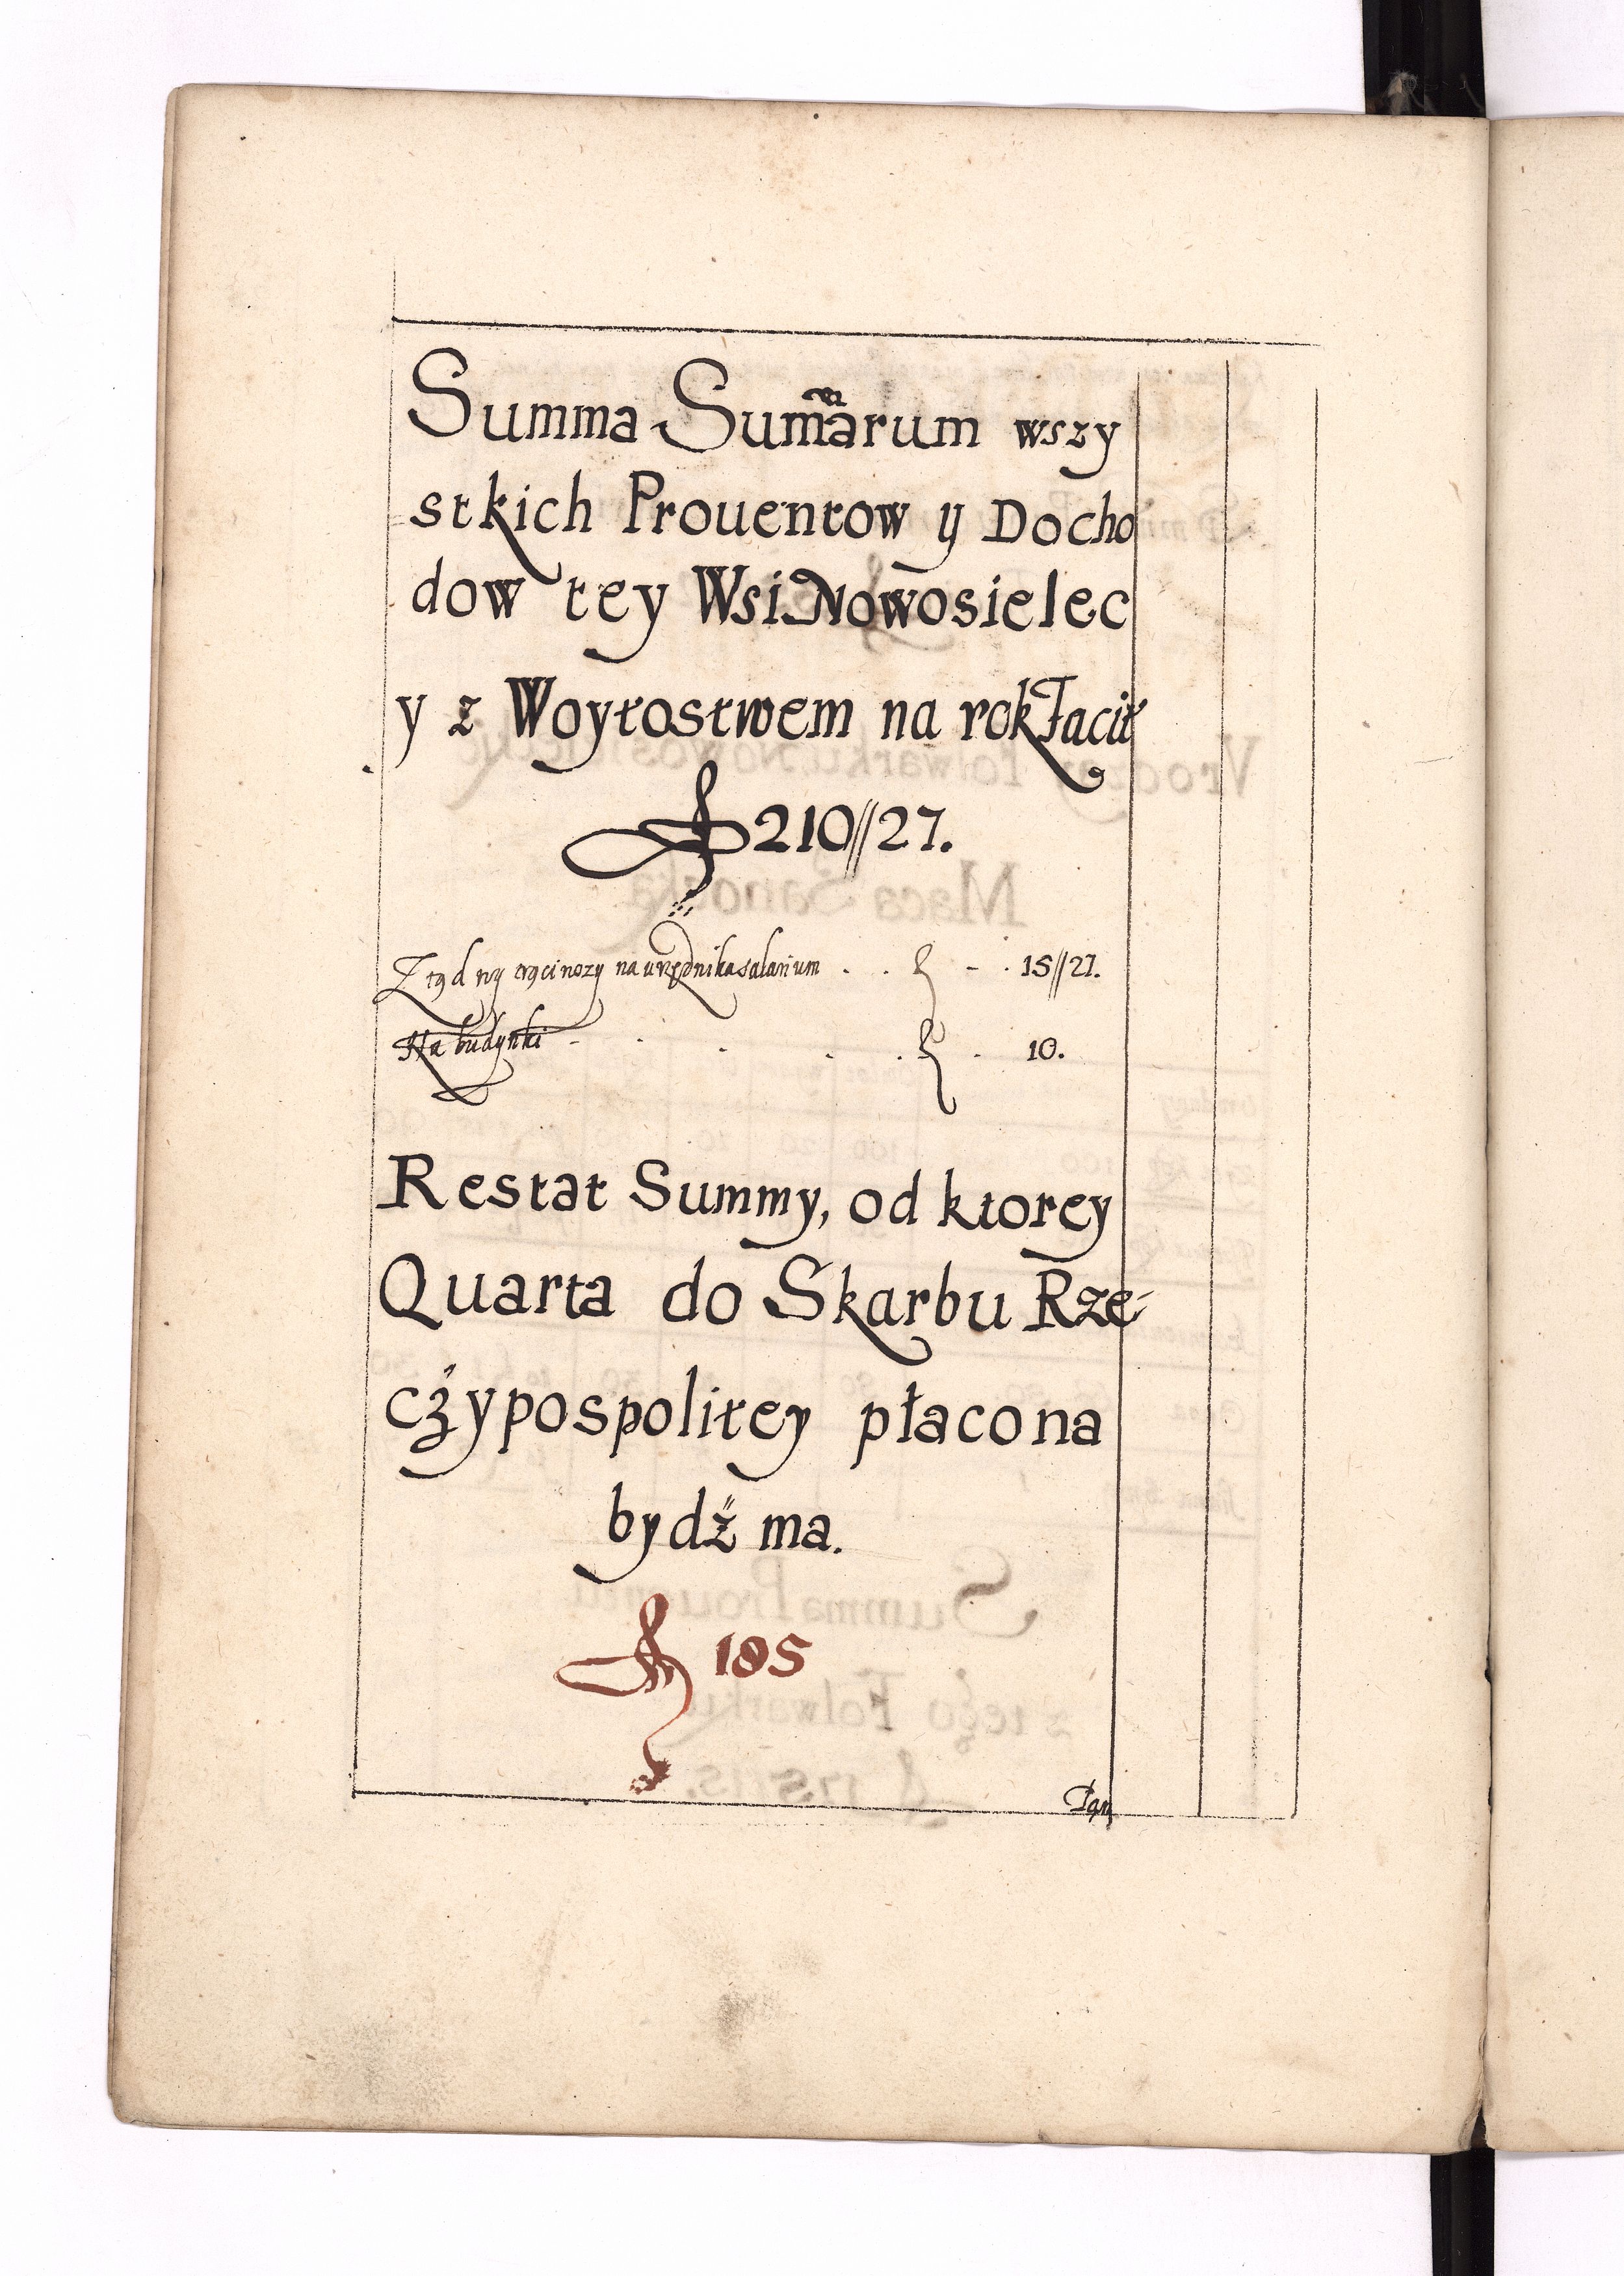 Summa Sum̃arum wszy
stkich Prouentow y Docho
dow tey Wsi Nowosielec
y z Woytostwem na rok facit
f 210//27.
Z tyd na urzędnika salarium . . f - . 15//27.
Na budynki - . . . . f . 10.
Restat Summy, od ktorey
Quarta do Skarbu Rze-
cżypospolitey płacona
bydź ma.
f 185